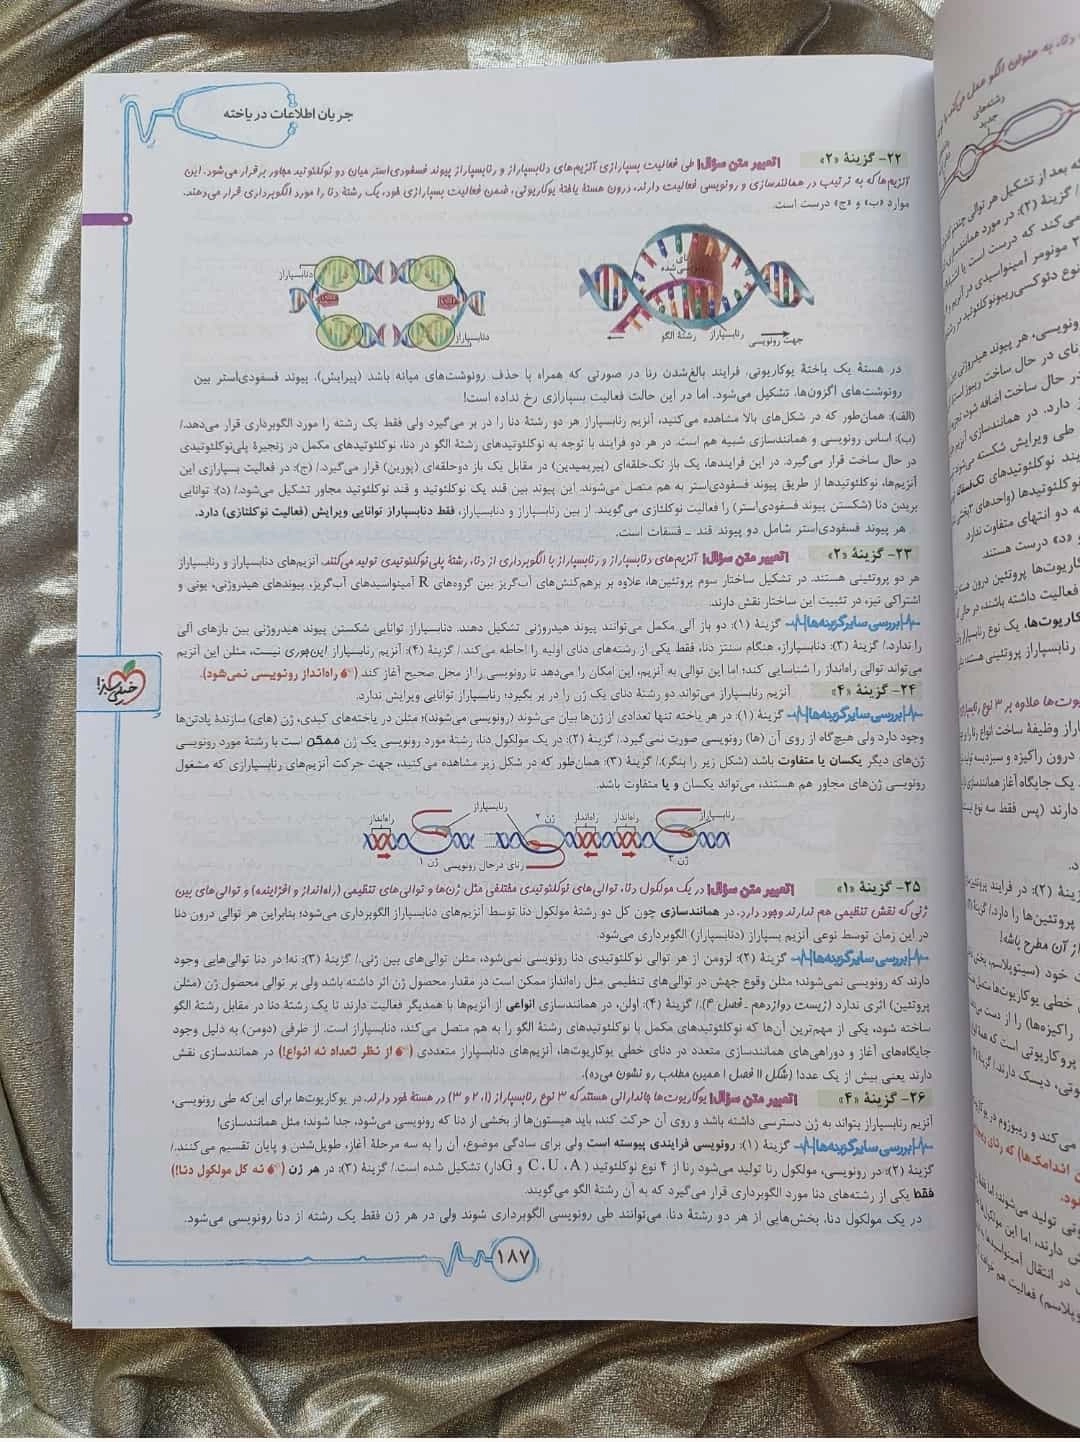 جریان اطلاعات در یاخته
۲۲- گزینهٔ «۲» |تعبیر متن سؤال| طی فعالیت بسپارازی آنزیم‌های دنابسپاراز و رنابسپاراز پیوند فسفودی‌استر میان دو نوکلئوتید مجاور برقرار می‌شود. این
آنزیم‌ها که به ترتیب در همانندسازی و رونویسی فعالیت دارند، درون هستهٔ یاختهٔ یوکاریوتی، ضمن فعالیت بسپارازی خود، یک رشتهٔ دنا را مورد الگوبرداری قرار می‌دهند.
موارد «ب» و «ج» درست است.
دنابسپاراز
دنابسپاراز
جهت رونویسی رنابسپاراز رشتهٔ الگو
در هستهٔ یک یاختهٔ یوکاریوتی، فرایند بالغ‌شدن رنا در صورتی که همراه با حذف رونوشت‌های میانه باشد (پیرایش)، پیوند فسفودی‌استر بین
رونوشت‌های اگزون‌ها، تشکیل می‌شود. اما در این حالت فعالیت بسپارازی رخ نداده است!
(الف): همان‌طور که در شکل‌های بالا مشاهده می‌کنید، آنزیم رنابسپاراز هر دو رشتهٔ دنا را در بر می‌گیرد ولی فقط یک رشته را مورد الگوبرداری قرار می‌دهد./
(ب): اساس رونویسی و همانندسازی شبیه هم است. در هر دو فرایند با توجه به نوکلئوتیدهای رشتهٔ الگو در دنا، نوکلئوتیدهای مکمل در زنجیرهٔ پلی‌نوکلئوتیدی
در حال ساخت قرار می‌گیرد. در این فرایندها، یک باز تک‌حلقه‌ای (پیریمیدین) در مقابل یک باز دوحلقه‌ای (پورین) قرار می‌گیرد./ (ج): در فعالیت بسپارازی این
آنزیم‌ها، نوکلئوتیدها از طریق پیوند فسفودی‌استر به هم متصل می‌شوند. این پیوند بین قند یک نوکلئوتید و قند نوکلئوتید مجاور تشکیل می‌شود./ (د): توانایی
بریدن دنا (شکستن پیوند فسفودی‌استر) را فعالیت نوکلئازی می‌گویند. از بین رنابسپاراز و دنابسپاراز، فقط دنابسپاراز توانایی ویرایش (فعالیت نوکلئازی) دارد.
هر پیوند فسفودی‌استر شامل دو پیوند قند ـ فسفات است.
۲۳- گزینهٔ «۲» |تعبیر متن سؤال| آنزیم‌های دنابسپاراز و رنابسپاراز با الگوبرداری از دنا، رشتهٔ پلی‌نوکلئوتیدی تولید می‌کنند. آنزیم‌های دنابسپاراز و رنابسپاراز
هر دو پروتئینی هستند. در تشکیل ساختار سوم پروتئین‌ها، علاوه بر برهم‌کنش‌های آب‌گریز بین گروه‌های R آمینواسیدهای آب‌گریز، پیوندهای هیدروژنی، یونی و
اشتراکی نیز، در تثبیت این ساختار نقش دارند.
بررسی سایر گزینه‌ها گزینهٔ (۱): دو باز آلی مکمل می‌توانند پیوند هیدروژنی تشکیل دهند. دنابسپاراز توانایی شکستن پیوند هیدروژنی بین بازهای آلی
را ندارد./ گزینهٔ (۳): دنابسپاراز، هنگام سنتز دنا، فقط یکی از رشته‌های دنای اولیه را احاطه می‌کند./ گزینهٔ (۴): آنزیم رنابسپاراز این‌جوری نیست، مثلن این آنزیم
می‌تواند توالی راه‌انداز را شناسایی کند؛ اما این توالی به آنزیم، این امکان را می‌دهد تا رونویسی را از محل صحیح آغاز کند (راه‌انداز رونویسی نمی‌شود).
۲۴- گزینهٔ «۴» آنزیم رنابسپاراز می‌تواند دو رشتهٔ دنای یک ژن را در بر بگیرد؛ رنابسپاراز توانایی ویرایش ندارد.
بررسی سایر گزینه‌ها گزینهٔ (۱): در هر یاخته تنها تعدادی از ژن‌ها بیان می‌شوند (رونویسی می‌شوند)؛ مثلن در یاخته‌های کبدی، ژن (های) سازندهٔ پادتن‌ها
وجود دارد ولی هیچ‌گاه از روی آن (ها) رونویسی صورت نمی‌گیرد./ گزینهٔ (۲): در یک مولکول دنا، رشتهٔ مورد رونویسی یک ژن ممکن است با رشتهٔ مورد رونویسی
ژن‌های دیگر یکسان یا متفاوت باشد (شکل زیر را بنگر)./ گزینهٔ (۳): همان‌طور که در شکل زیر مشاهده می‌کنید، جهت حرکت آنزیم‌های رنابسپارازی که مشغول
رونویسی ژن‌های مجاور هم هستند، می‌تواند یکسان و یا متفاوت باشد.
رنابسپاراز راه‌انداز راه‌انداز ژن ۲ رنابسپاراز راه‌انداز
ژن ۳ رنای درحال رونویسی ژن ۱
۲۵- گزینهٔ «۱» |تعبیر متن سؤال| در یک مولکول دنا، توالی‌های نوکلئوتیدی مختلفی مثل ژن‌ها و توالی‌های تنظیمی (راه‌انداز و افزاینده) و توالی‌های بین
ژنی که نقش تنظیمی هم ندارند وجود دارد. در همانندسازی چون کل دو رشتهٔ مولکول دنا توسط آنزیم‌های دنابسپاراز الگوبرداری می‌شود؛ بنابراین هر توالی درون دنا
در این زمان توسط نوعی آنزیم بسپاراز (دنابسپاراز) الگوبرداری می‌شود.
بررسی سایر گزینه‌ها گزینهٔ (۲): لزومن از هر توالی نوکلئوتیدی دنا رونویسی نمی‌شود، مثلن توالی‌های بین ژنی./ گزینهٔ (۳): نه! در دنا توالی‌هایی وجود
دارند که رونویسی نمی‌شوند؛ مثلن وقوع جهش در توالی‌های تنظیمی مثل راه‌انداز ممکن است در مقدار محصول ژن اثر داشته باشد ولی بر توالی محصول ژن (مثلن
پروتئین) اثری ندارد (زیست دوازدهم ـ فصل ۴)./ گزینهٔ (۴): اولن، در همانندسازی انواعی از آنزیم‌ها با همدیگر فعالیت دارند تا یک رشتهٔ دنا در مقابل رشتهٔ الگو
ساخته شود، یکی از مهم‌ترین آن‌ها که نوکلئوتیدهای مکمل با نوکلئوتیدهای رشتهٔ الگو را به هم متصل می‌کند، دنابسپاراز است. از طرفی (دومن) به دلیل وجود
جایگاه‌های آغاز و دوراهی‌های همانندسازی متعدد در دنای خطی یوکاریوت‌ها، آنزیم‌های دنابسپاراز متعددی (از نظر تعداد نه انواع!) در همانندسازی نقش
دارند یعنی بیش از یک عدد! (شکل ۱۱ فصل ۱ همین مطلب رو نشون می‌ده).
۲۶- گزینهٔ «۴» |تعبیر متن سؤال| یوکاریوت‌ها جاندارانی هستند که ۳ نوع رنابسپاراز (۱، ۲ و ۳) در هستهٔ خود دارند. در یوکاریوت‌ها برای این‌که طی رونویسی،
آنزیم رنابسپاراز بتواند به ژن دسترسی داشته باشد و روی آن حرکت کند، باید هیستون‌ها از بخشی از دنا که رونویسی می‌شود، جدا شوند؛ مثل همانندسازی!
بررسی سایر گزینه‌ها گزینهٔ (۱): رونویسی فرایندی پیوسته است ولی برای سادگی موضوع، آن را به سه مرحلهٔ آغاز، طویل‌شدن و پایان تقسیم می‌کنند./
گزینهٔ (۲): در رونویسی، مولکول رنا تولید می‌شود رنا از ۴ نوع نوکلئوتید (C ،U ،A و Gدار) تشکیل شده است./ گزینهٔ (۳): در هر ژن (نه کل مولکول دنا!)
فقط یکی از رشته‌های دنا مورد الگوبرداری قرار می‌گیرد که به آن رشتهٔ الگو می‌گویند.
در یک مولکول دنا، بخش‌هایی از هر دو رشتهٔ دنا، می‌توانند طی رونویسی الگوبرداری شوند ولی در هر ژن فقط یک رشته از دنا رونویسی می‌شود.
۱۸۷
خیلی سبز